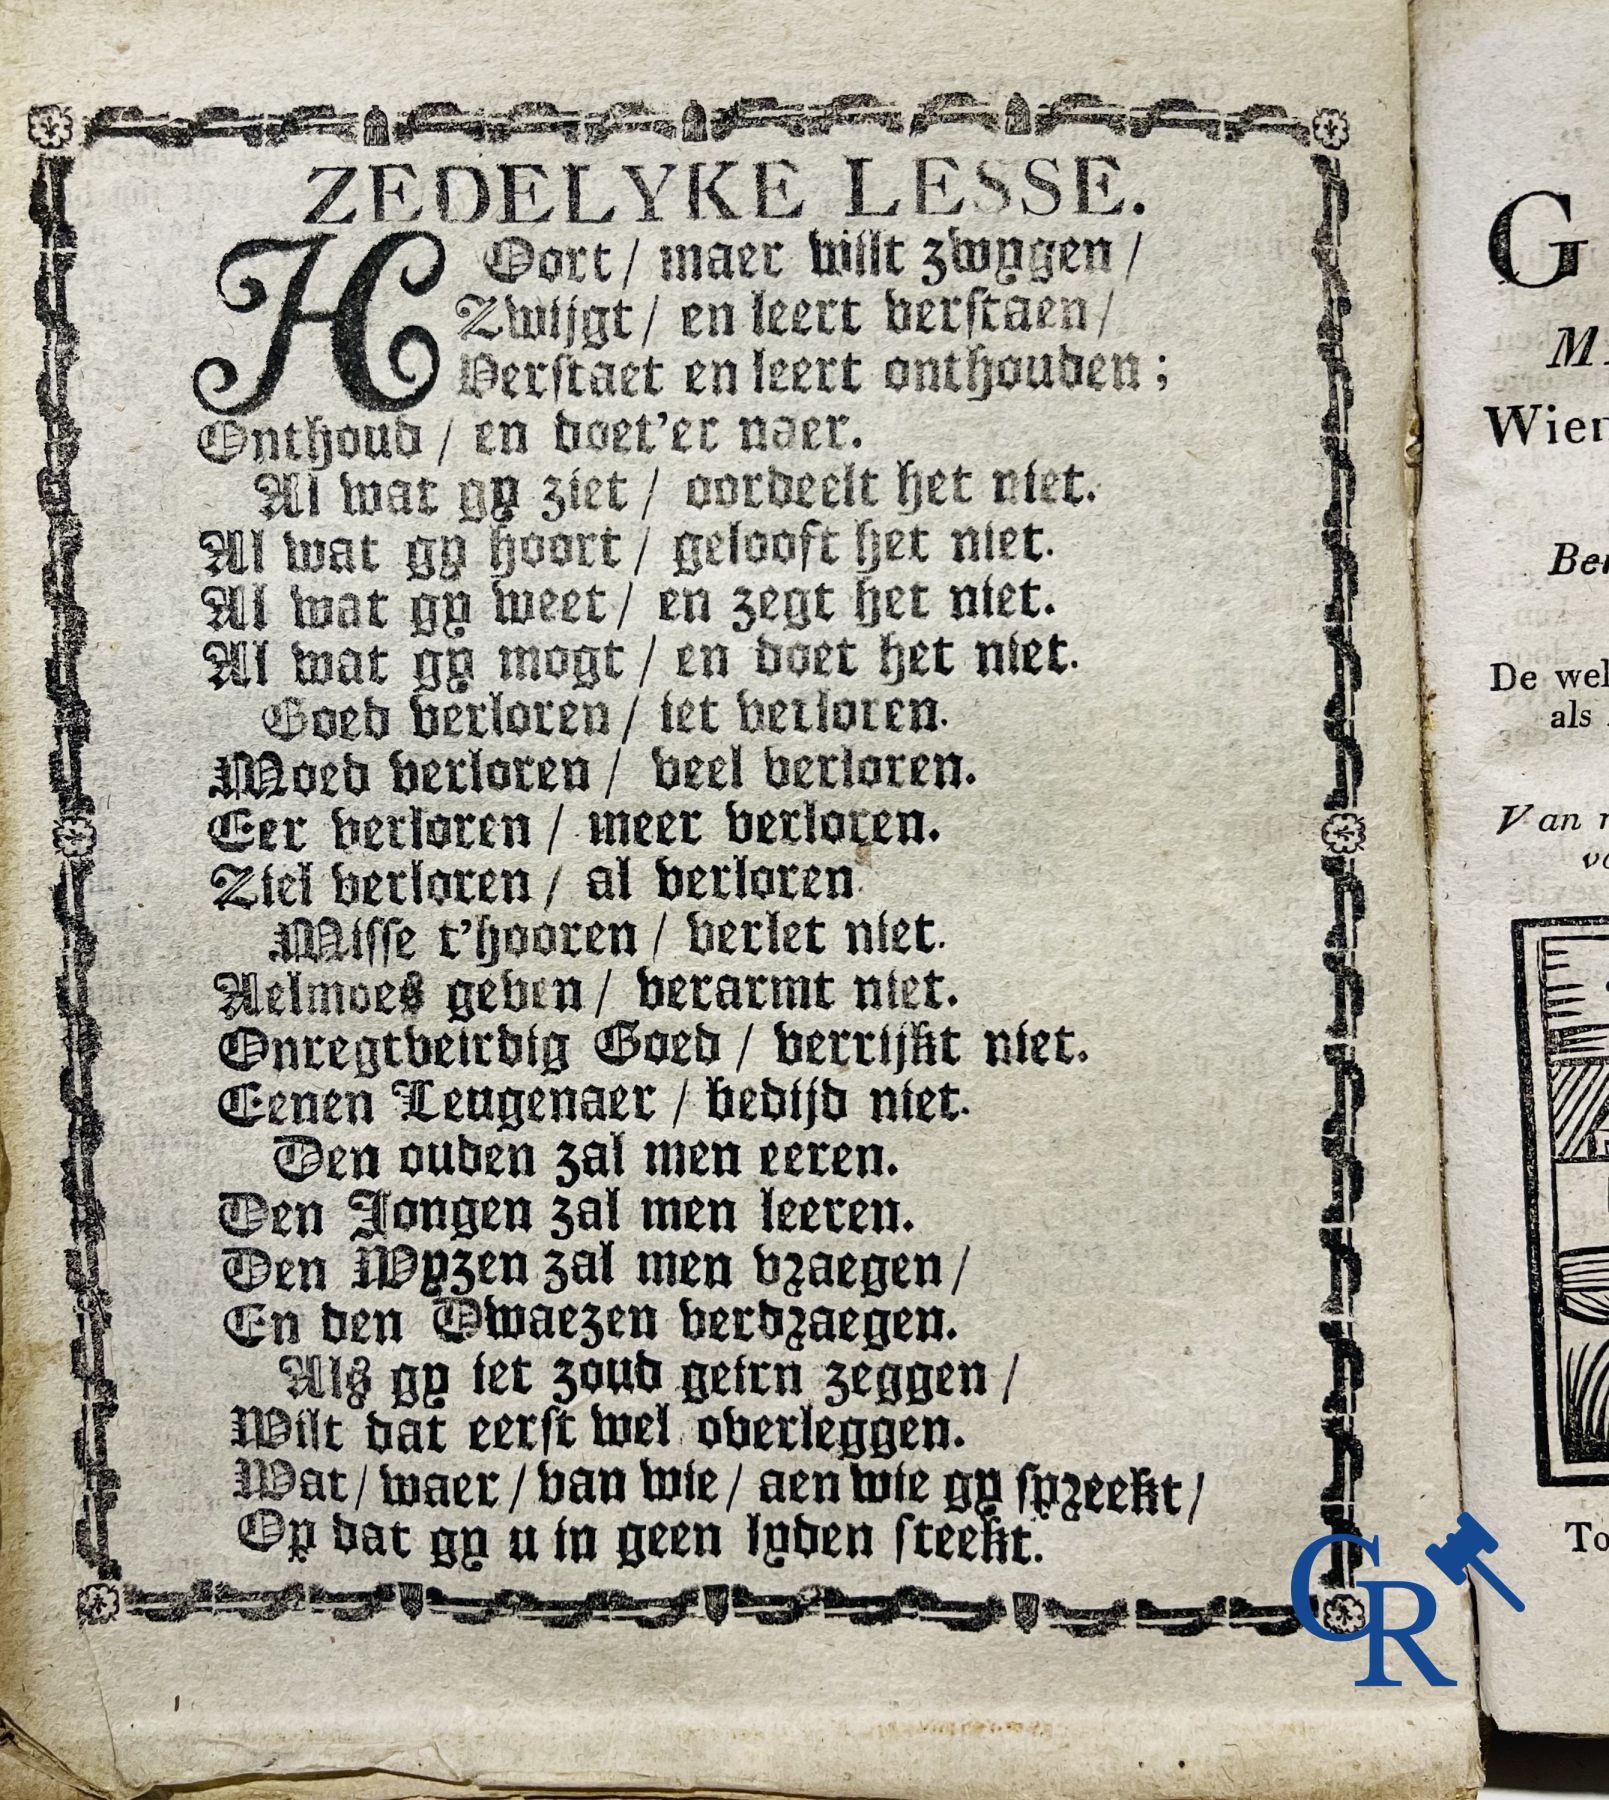 ZEDELYKE LESSE.
HOort / maer willt zwygen /
Zwijgt / en leert verstaen /
Verstaet en leert onthouden ;
Onthoud / en doet'er naer.
Al wat gy ziet / oordeelt het niet.
Al wat gy hoort / gelooft het niet.
Al wat gy weet / en zegt het niet.
Al wat gy mogt / en doet het niet.
Goed verloren / iet verloren.
Moed verloren / veel verloren.
Eer verloren / meer verloren.
Ziel verloren / al verloren
Misse t'hooren / verlet niet.
Aelmoes geven / verarmt niet.
Onregtveirdig Goed / verrijkt niet.
Eenen Leugenaer / bedijd niet.
Den ouden zal men eeren.
Den Jongen zal men leeren.
Den Wyzen zal men vraegen /
En den Dwaezen verdraegen.
Als gy iet zoud geirn zeggen /
Wilt dat eerst wel overleggen.
Wat / waer / van wie / aen wie gy spreekt /
Op dat gy u in geen lyden steekt.
G
M
Wien
Ber
De wel
als
Van
vo
To
CR